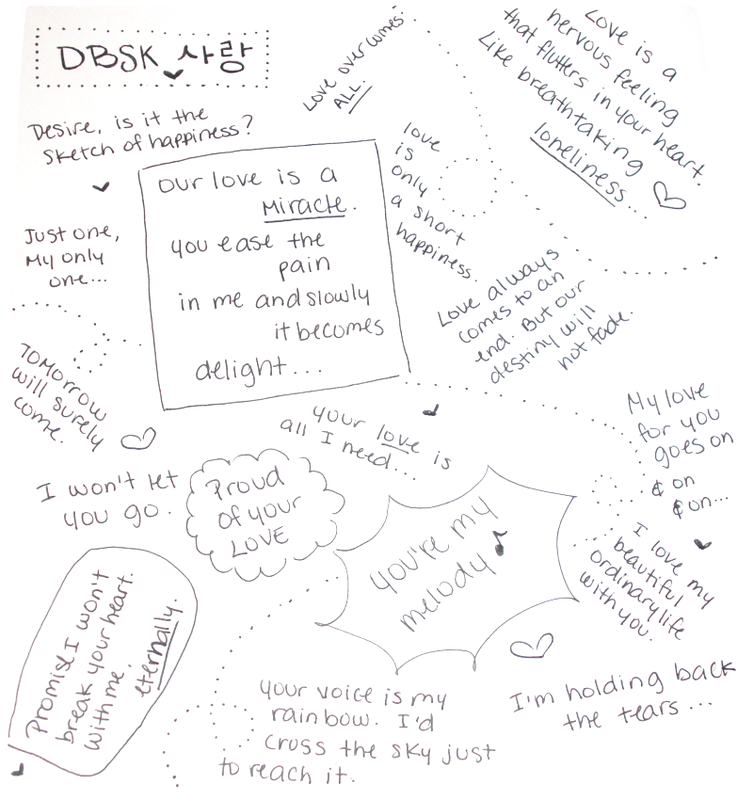 DBSK 사랑
Love over comes
ALL.
Love is a
nervous feeling
that flutters in your heart.
Like breathtaking
loneliness...
Desire, is it the
sketch of happiness?
love
is
only
a short
happiness.
Our love is a
Miracle.
you ease the
pain
in me and slowly
it becomes
delight....
Just one,
My only
one...
Love always
comes to an
end. But our
destiny will
not fade.
Tomorrow
will surely
come.
your love is
all I need...
My love
for you
goes on
& on
& on...
I won't let
you go.
Proud
of your
LOVE
you're my
melody
I love my
beautiful
ordinary life
with you.
Promise I won't
break your heart.
with me.
eternally.
your voice is my
rainbow. I'd
cross the sky just
to reach it.
I'm holding back
the tears...